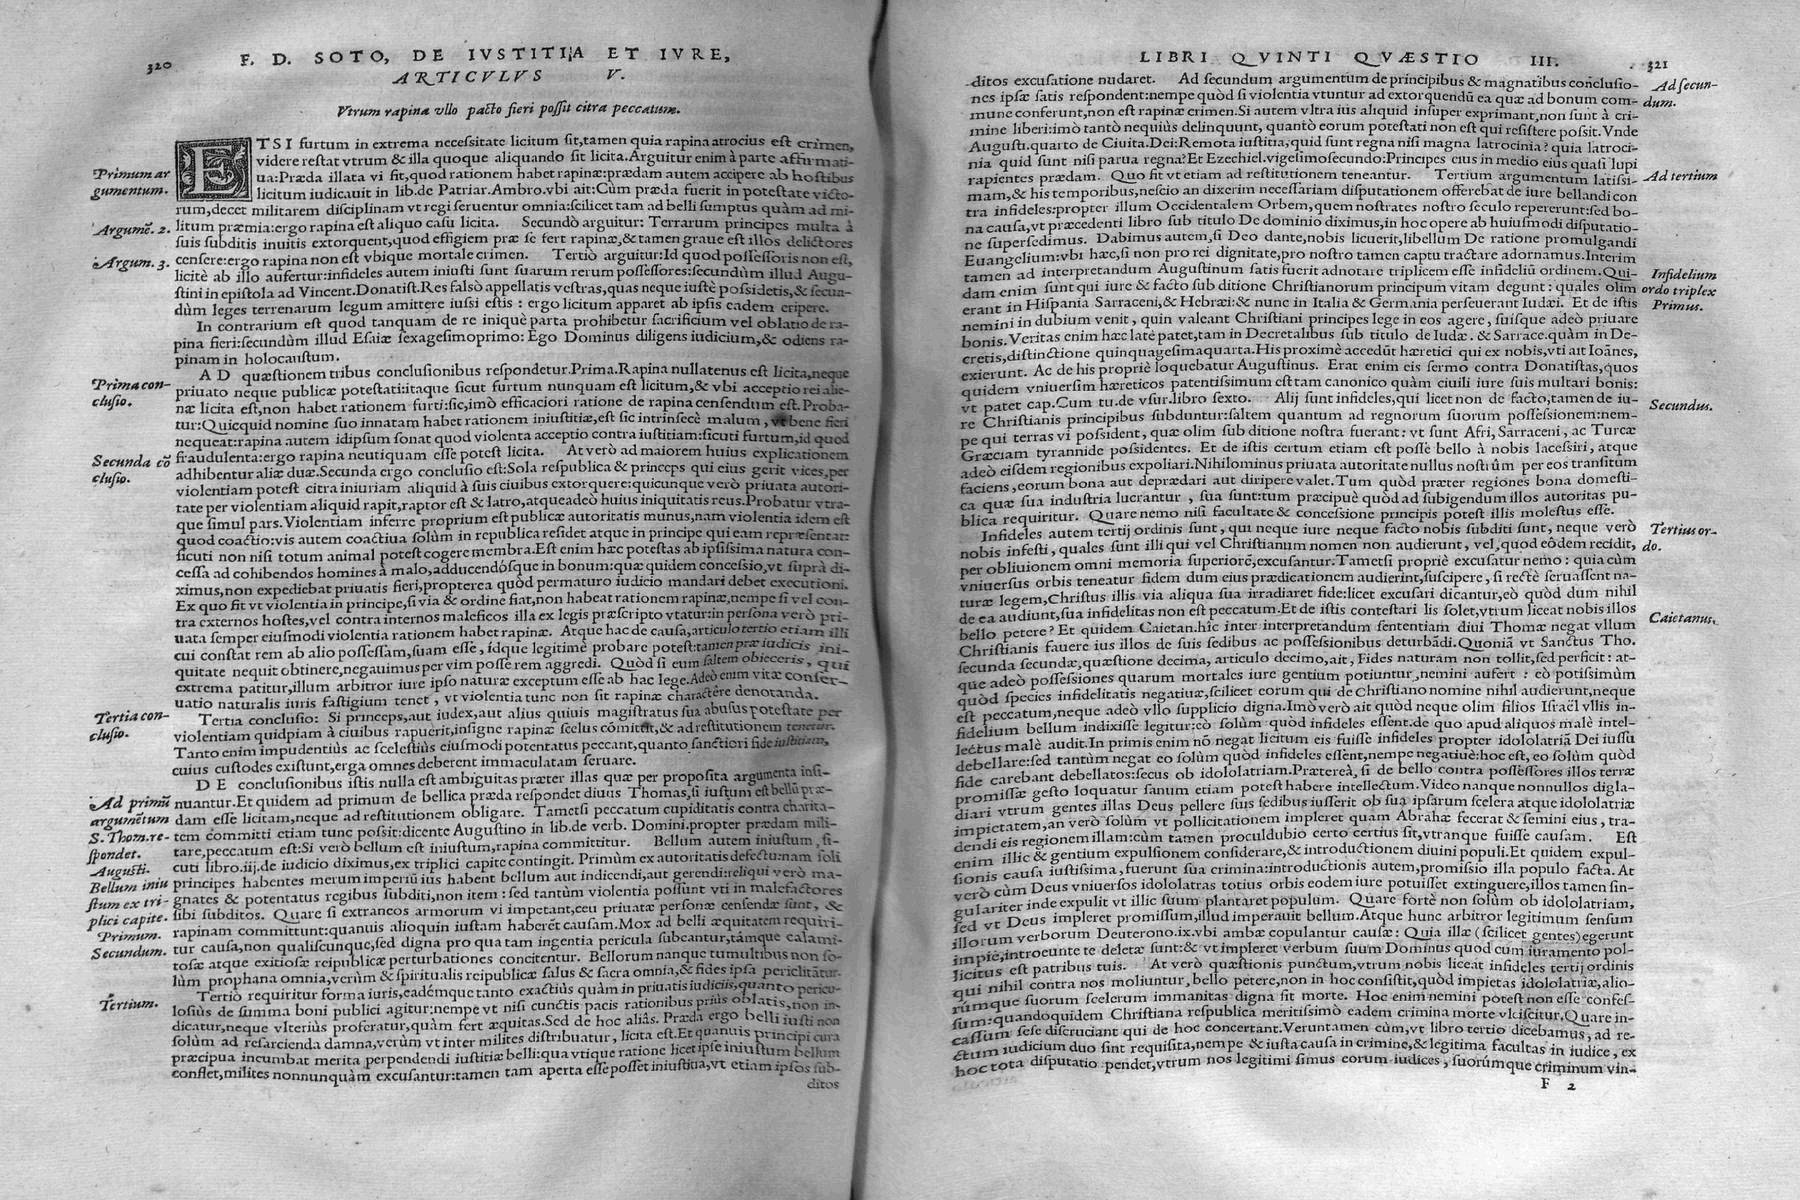 320
F. D. SOTO, DE IVSTITIA ET IVRE,
ARTICVLVS V.
Vtrum rapina vllo pacto fieri possit citra peccatum.
ETSI furtum in extrema necessitate licitum sit, tamen quia rapina atrocius est crimen,
videre restat vtrum & illa quoque aliquando sit licita. Arguitur enim à parte affirmati-
Primum ar
ua: Præda illata vi fit, quod rationem habet rapinæ: prædam autem accipere ab hostibus
gumentum.
licitum iudicauit in lib. de Patriar. Ambro. vbi ait: Cùm præda fuerit in potestate victo-
rum, decet militarem disciplinam vt regi seruentur omnia: scilicet tam ad belli sumptus quàm ad mi-
Argumē. 2.
litum præmia: ergo rapina est aliquo casu licita. Secundò arguitur: Terrarum principes multa à
suis subditis inuitis extorquent, quod effigiem præ se fert rapinæ, & tamen graue est illos delictores
censere: ergo rapina non est vbique mortale crimen. Tertiò arguitur: Id quod possessoris non est,
Argum. 3.
licitè ab illo aufertur: infideles autem iniusti sunt suarum rerum possessores: secundùm illud Augu-
stini in epistola ad Vincent. Donatist. Res falsò appellatis vestras, quas neque iustè possidetis, & secun-
dùm leges terrenarum legum amittere iussi estis: ergo licitum apparet ab ipsis eadem eripere.
In contrarium est quod tanquam de re iniquè parta prohibetur sacrificium vel oblatio de ra-
pina fieri: secundùm illud Esaiæ sexagesimoprimo: Ego Dominus diligens iudicium, & odiens ra-
pinam in holocaustum.
AD quæstionem tribus conclusionibus respondetur. Prima. Rapina nullatenus est licita, neque
Prima con-
priuato neque publicæ potestati: itaque sicut furtum nunquam est licitum, & vbi acceptio rei alie-
clusio.
næ licita est, non habet rationem furti: sic, imò efficaciori ratione de rapina censendum est. Proba-
tur: Quicquid nomine suo innatam habet rationem iniustitiæ, est sic intrinsecè malum, vt bene fieri
nequeat: rapina autem idipsum sonat quod violenta acceptio contra iustitiam: sicuti furtum, id quod
fraudulenta: ergo rapina neutiquam esse potest licita. At verò ad maiorem huius explicationem
Secunda cō
adhibentur aliæ duæ. Secunda ergo conclusio est: Sola respublica & princeps qui eius gerit vices, per
clusio.
violentiam potest citra iniuriam aliquid à suis ciuibus extorquere: quicunque verò priuata autori-
tate per violentiam aliquid rapit, raptor est & latro, atque adeò huius iniquitatis reus. Probatur vtra-
que simul pars. Violentiam inferre proprium est publicæ autoritatis munus, nam violentia idem est
quod coactio: vis autem coactiua solùm in republica residet atque in principe qui eam repræsentat:
sicuti non nisi totum animal potest cogere membra. Est enim hæc potestas ab ipsissima natura con-
cessa ad cohibendos homines à malo, adducendósque in bonum: quæ quidem concessio, vt suprà di-
ximus, non expediebat priuatis fieri, propterea quòd permaturo iudicio mandari debet executioni.
Ex quo fit vt violentia in principe, si via & ordine fiat, non habeat rationem rapinæ, nempe si vel con-
tra externos hostes, vel contra internos maleficos illa ex legis præscripto vtatur: in persona verò pri-
uata semper eiusmodi violentia rationem habet rapinæ. Atque hac de causa, articulo tertio etiam illi
cui constat rem ab alio possessam, suam esse, ídque legitimè probare potest: tamen præ iudicis ini-
quitate nequit obtinere, negauimus per vim posse rem aggredi. Quòd si eum saltem obieceris, qui
extrema patitur, illum arbitror iure ipso naturæ exceptum esse ab hac lege. Adeò enim vitæ conser-
uatio naturalis iuris fastigium tenet, vt violentia tunc non sit rapinæ charactère denotanda.
Tertia con-
Tertia conclusio: Si princeps, aut iudex, aut alius quiuis magistratus sua abusus potestate per
clusio.
violentiam quidpiam à ciuibus rapuerit, insigne rapinæ scelus cōmittit, & ad restitutionem tenetur.
Tanto enim impudentiùs ac scelestiùs eiusmodi potentatus peccant, quanto sanctiori fide iustitiam,
cuius custodes existunt, erga omnes deberent immaculatam seruare.
DE conclusionibus istis nulla est ambiguitas præter illas quæ per proposita argumenta insi-
Ad primū
nuantur. Et quidem ad primum de bellica præda respondet diuus Thomas, si iustum est bellū præ-
argumētum
dam esse licitam, neque ad restitutionem obligare. Tametsi peccatum cupiditatis contra charita-
S. Thom. re-
tem committi etiam tunc possit: dicente Augustino in lib. de verb. Domini. propter prædam mili-
spondet.
tare, peccatum est: Si verò bellum est iniustum, rapina committitur. Bellum autem iniustum, si-
Augusti.
cuti libro .iij. de iudicio diximus, ex triplici capite contingit. Primùm ex autoritatis defectu: nam soli
Bellum iniu
principes habentes merum imperiū ius habent bellum aut indicendi, aut gerendi: reliqui verò ma-
stum ex tri-
gnates & potentatus regibus subditi, non item: sed tantùm violentia possunt vti in malefactores
plici capite.
sibi subditos. Quare si extraneos armorum vi impetant, ceu priuatæ personæ censendæ sunt, &
Primum.
rapinam committunt: quanuis alioquin iustam haberēt causam. Mox ad belli æquitatem requiri-
Secundum.
tur causa, non qualiscunque, sed digna pro qua tam ingentia pericula subeantur, támque calami-
tosæ atque exitiosæ reipublicæ perturbationes concitentur. Bellorum nanque tumultibus non so-
lùm prophana omnia, verùm & spiritualis reipublicæ salus & sacra omnia, & fides ipsa periclitātur.
Tertium.
Tertiò requiritur forma iuris, eadémque tanto exactiùs quàm in priuatis iudiciis, quanto pericu-
losiùs de summa boni publici agitur: nempe vt nisi cunctis pacis rationibus priùs oblatis, non in-
dicatur, neque vlteriùs proferatur, quàm fert æquitas. Sed de hoc aliâs. Præda ergo belli iusti non
solùm ad resarcienda damna, verùm vt inter milites distribuatur, licita est. Et quanuis principi cura
præcipua incumbat merita perpendendi iustitiæ belli: qua vtique ratione licet ipse iniustum bellum
conflet, milites nonnunquàm excusantur: tamen tam aperta esse posset iniustitia, vt etiam ipsos sub-
ditos
LIBRI QVINTI QVÆSTIO III.
321
ditos excusatione nudaret. Ad secundum argumentum de principibus & magnatibus conclusio-
Ad secun-
nes ipsæ satis respondent: nempe quòd si violentia vtuntur ad extorquendū ea quæ ad bonum com-
dum.
mune conferunt, non est rapinæ crimen. Si autem vltra ius aliquid insuper exprimant, non sunt à cri-
mine liberi: imò tantò nequiùs delinquunt, quantò eorum potestati non est qui resistere possit. Vnde
Augusti. quarto de Ciuita. Dei: Remota iustitia, quid sunt regna nisi magna latrocinia? quia latroci-
nia quid sunt nisi parua regna? Et Ezechiel. vigesimosecundo: Principes eius in medio eius quasi lupi
rapientes prædam. Quo fit vt etiam ad restitutionem teneantur. Tertium argumentum latissi-
Ad tertium
mam, & his temporibus, nescio an dixerim necessariam disputationem offerebat de iure bellandi con
tra infideles: propter illum Occidentalem Orbem, quem nostrates nostro seculo repererunt: sed bo-
na causa, vt præcedenti libro sub titulo De dominio diximus, in hoc opere ab huiusmodi disputatio-
ne supersedimus. Dabimus autem, si Deo dante, nobis licuerit, libellum De ratione promulgandi
Euangelium: vbi hæc, si non pro rei dignitate, pro nostro tamen captu tractare adornamus. Interim
tamen ad interpretandum Augustinum satis fuerit adnotare triplicem esse infideliū ordinem. Qui-
Infidelium
dam enim sunt qui iure & facto sub ditione Christianorum principum vitam degunt: quales olim
ordo triplex
erant in Hispania Sarraceni, & Hebræi: & nunc in Italia & Germania perseuerant Iudæi. Et de istis
Primus.
nemini in dubium venit, quin valeant Christiani principes lege in eos agere, suisque adeò priuare
bonis. Veritas enim hæc latè patet, tam in Decretalibus sub titulo de Iudæ. & Sarrace. quàm in De-
cretis, distinctione quinquagesimaquarta. His proximè accedūt hæretici qui ex nobis, vti ait Ioānes,
exierunt. Ac de his propriè loquebatur Augustinus. Erat enim eis sermo contra Donatistas, quos
quidem vniuersim hæreticos patentissimum est tam canonico quàm ciuili iure suis multari bonis:
vt patet cap. Cum tu. de vsur. libro sexto. Alij sunt infideles, qui licet non de facto, tamen de iu-
Secundus.
re Christianis principibus subduntur: saltem quantum ad regnorum suorum possessionem: nem-
pe qui terras vi possident, quæ olim sub ditione nostra fuerant: vt sunt Afri, Sarraceni, ac Turcæ
Græciam tyrannide possidentes. Et de istis certum etiam est posse bello à nobis lacessiri, atque
adeò eisdem regionibus expoliari. Nihilominus priuata autoritate nullus nostrûm per eos transitum
faciens, eorum bona aut deprædari aut diripere valet. Tum quòd præter regiones bona domesti-
ca quæ sua industria lucrantur, sua sunt: tum præcipuè quòd ad subigendum illos autoritas pu-
blica requiritur. Quare nemo nisi facultate & concessione principis potest illis molestus esse.
Infideles autem tertij ordinis sunt, qui neque iure neque facto nobis subditi sunt, neque verò
Tertius or-
nobis infesti, quales sunt illi qui vel Christianum nomen non audierunt, vel, quod eòdem recidit,
do.
per obliuionem omni memoria superiorē, excusantur. Tametsi propriè excusatur nemo: quia cùm
vniuersus orbis teneatur fidem dum eius prædicationem audierint, suscipere, si rectè seruassent na-
turæ legem, Christus illis via aliqua sua irradiaret fide: licet excusari dicantur, eò quòd dum nihil
de ea audiunt, sua infidelitas non est peccatum. Et de istis contestari lis solet, vtrum liceat nobis illos
bello petere? Et quidem Caietan. hîc inter interpretandum sententiam diui Thomæ negat vllum
Caietanus.
Christianis fauere ius illos de suis sedibus ac possessionibus deturbādi. Quoniā vt Sanctus Tho.
secunda secundæ, quæstione decima, articulo decimo, ait, Fides naturam non tollit, sed perficit: at-
que adeò possessiones quarum mortales iure gentium potiuntur, nemini aufert: eò potissimùm
quòd species infidelitatis negatiuæ, scilicet eorum qui de Christiano nomine nihil audierunt, neque
est peccatum, neque adeò vllo supplicio digna. Imò verò ait quòd neque olim filios Israël vllis in-
fidelium bellum indixisse legitur: eò solùm quòd infideles essent. de quo apud aliquos malè intel-
lectus malè audit. In primis enim nō negat licitum eis fuisse infideles propter idololatriā Dei iussu
debellare: sed tantùm negat eo solùm quòd infideles essent, nempe negatiuè: hoc est, eo solùm quòd
fide carebant debellatos: secus ob idololatriam. Prætereà, si de bello contra possessores illos terræ
promissæ gesto loquatur sanum etiam potest habere intellectum. Video nanque nonnullos digla-
diari vtrum gentes illas Deus pellere suis sedibus iusserit ob sua ipsarum scelera atque idololatriæ
impictatem, an verò solùm vt pollicitationem impleret quam Abrahæ fecerat & semini eius, tra-
dendi eis regionem illam: cùm tamen proculdubio certo certius sit, vtranque fuisse causam. Est
enim illic & gentium expulsionem considerare, & introductionem diuini populi. Et quidem expul-
sionis causa iustissima, fuerunt sua crimina: introductionis autem, promissio illa populo facta. At
verò cùm Deus vniuersos idololatras totius orbis eodem iure potuisset extinguere, illos tamen sin-
gulariter inde expulit vt illic suum plantaret populum. Quare fortè non solùm ob idololatriam,
sed vt Deus impleret promissum, illud imperauit bellum. Atque hunc arbitror legitimum sensum
illorum verborum Deuterono. ix. vbi ambæ copulantur causæ: Quia illæ (scilicet gentes) egerunt
impiè, introeunte te deletæ sunt: & vt impleret verbum suum Dominus quod cum iuramento pol-
licitus est patribus tuis. At verò quæstionis punctum, vtrum nobis liceat infideles tertij ordinis
qui nihil contra nos moliuntur, bello petere, non in hoc consistit, quòd impietas idololatriæ, alio-
rúmque suorum scelerum immanitas digna sit morte. Hoc enim nemini potest non esse confes-
sum: quandoquidem Christiana respublica meritissimò eadem crimina morte vlciscitur. Quare in-
cassum sese discruciant qui de hoc concertant. Veruntamen cùm, vt libro tertio dicebamus, ad re-
ctum iudicium duo sint requisita, nempe & iusta causa in crimine, & legitima facultas in iudice, ex
hoc tota disputatio pendet, vtrum nos legitimi simus eorum iudices, suorúmque criminum vin-
F 2